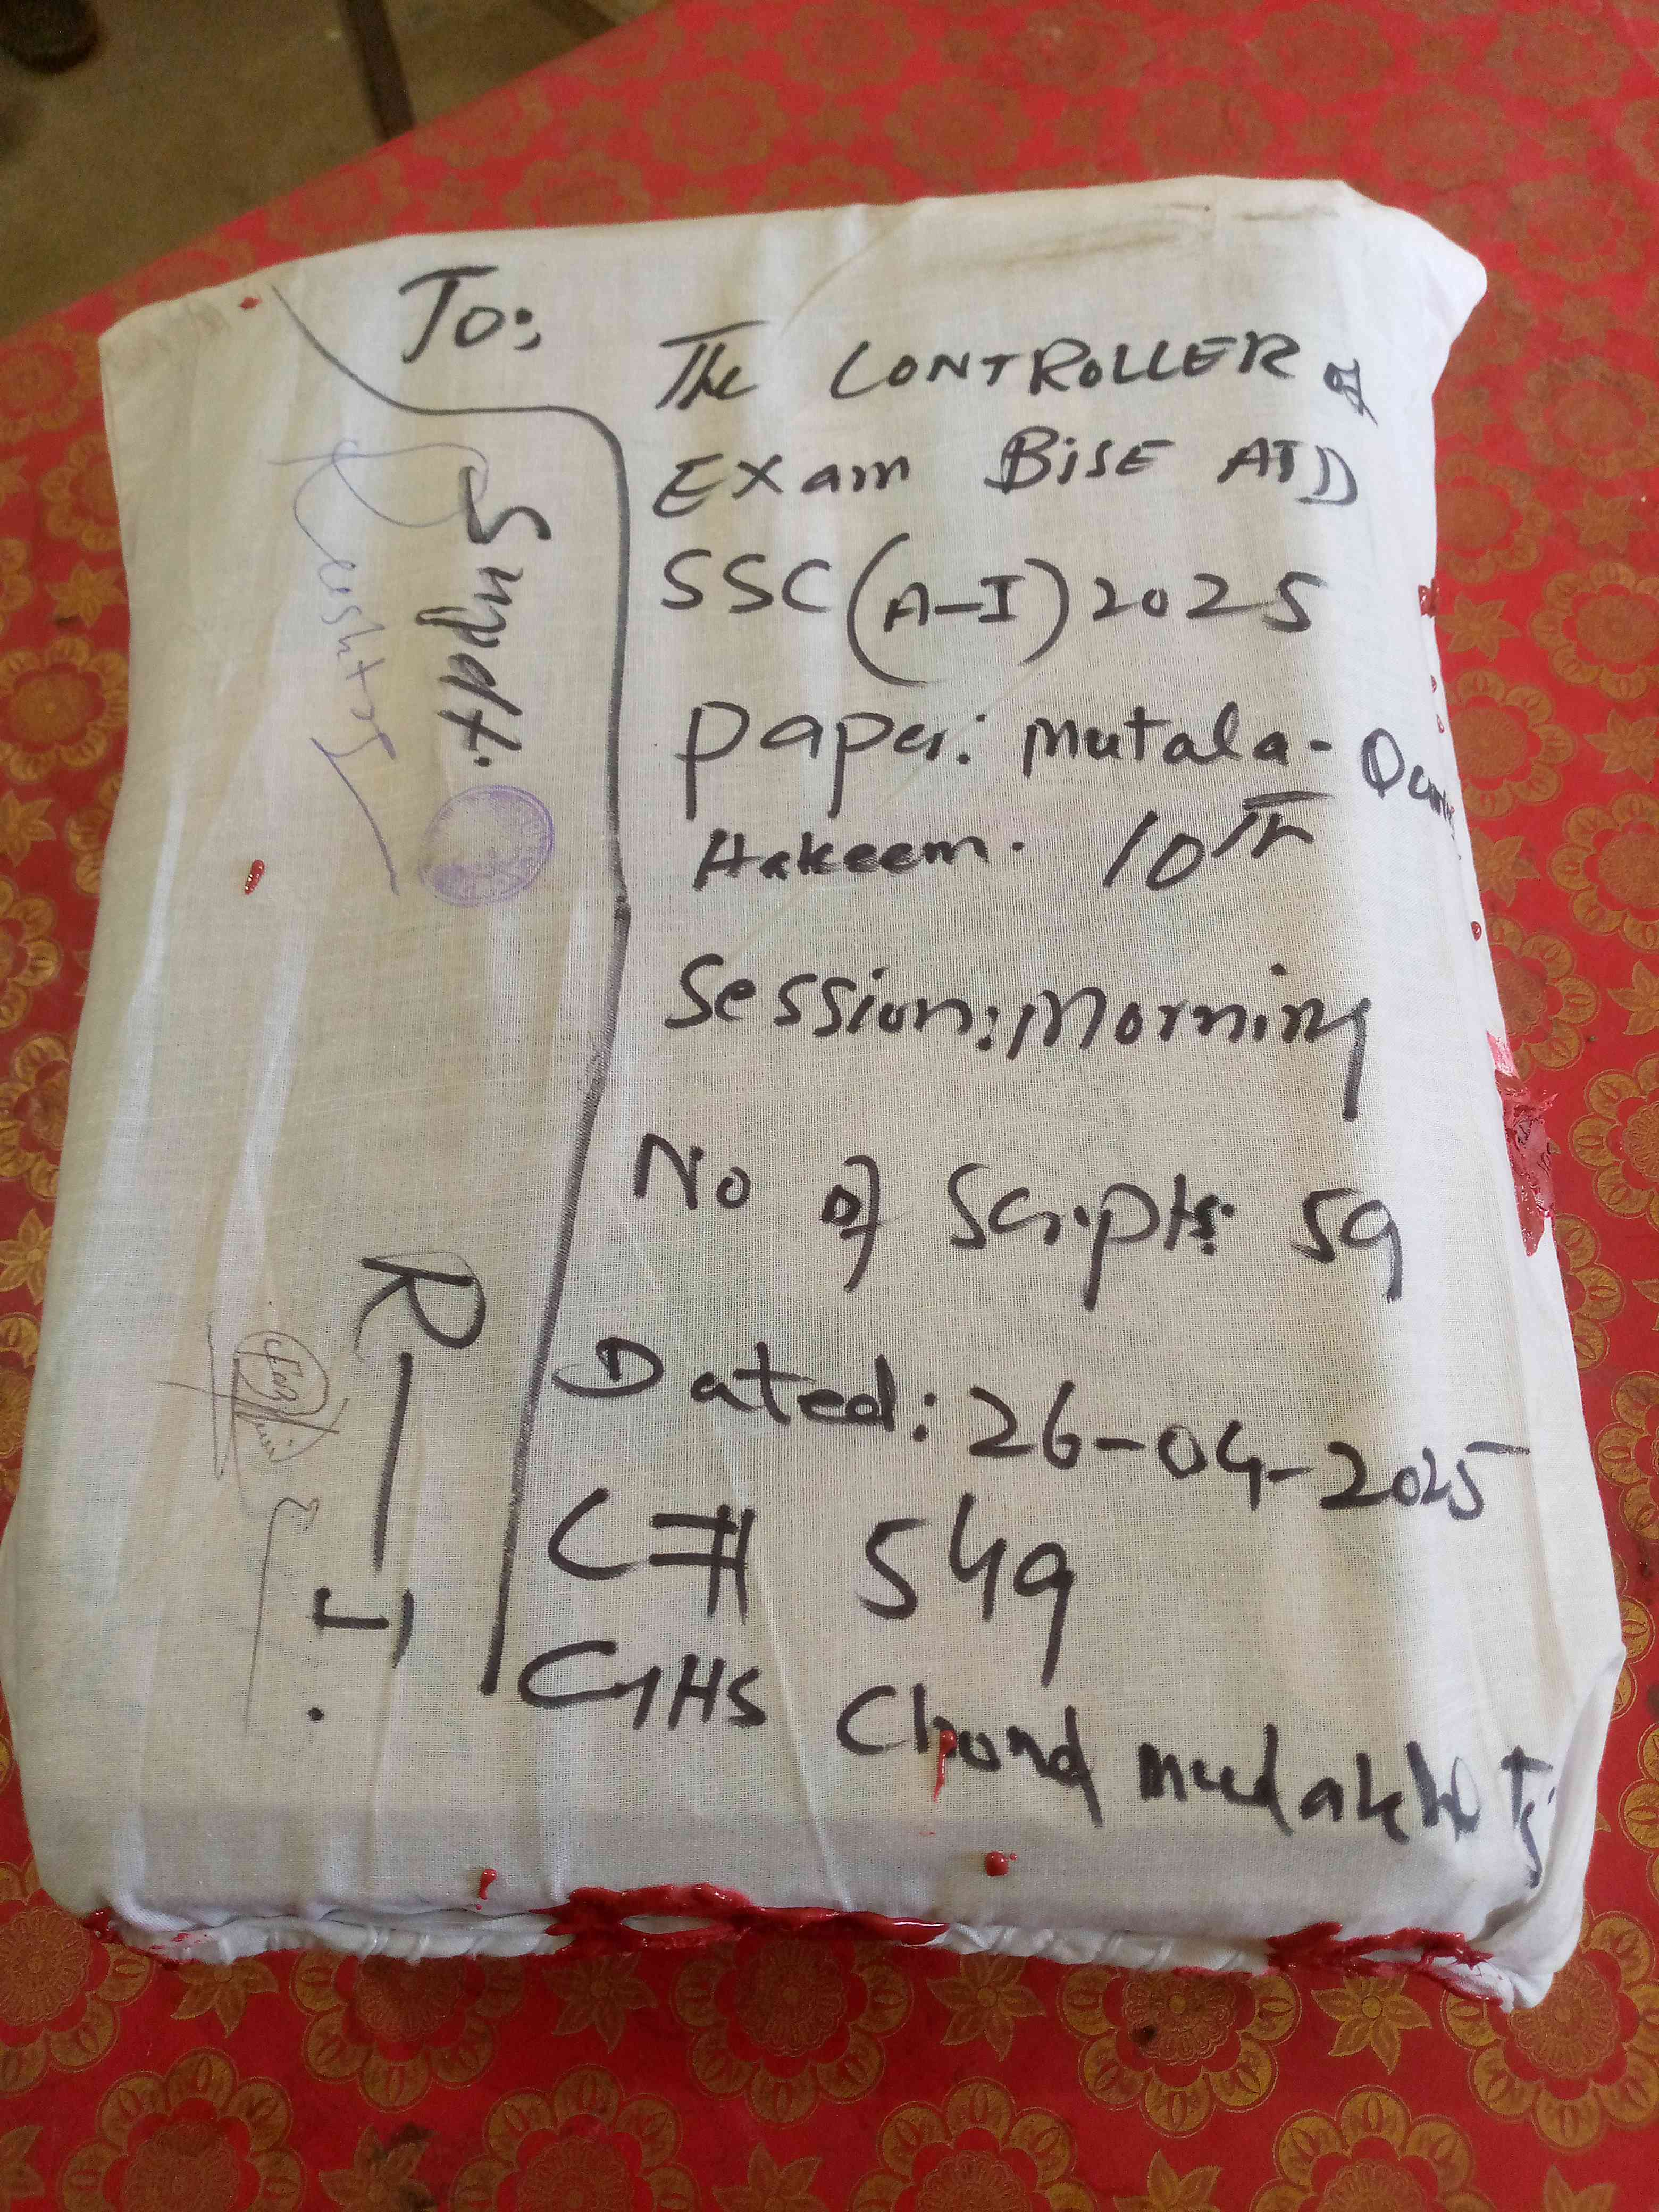 To:
The CONTROLLER of
Exam BISE ATD
SSC (A-I) 2025
Paper: Mutala-
Hakeem. 10th
Session: Morning
No of Scripts: 59
Dated: 26-04-2025
C# 549
GHS
Supdt.
R—I.